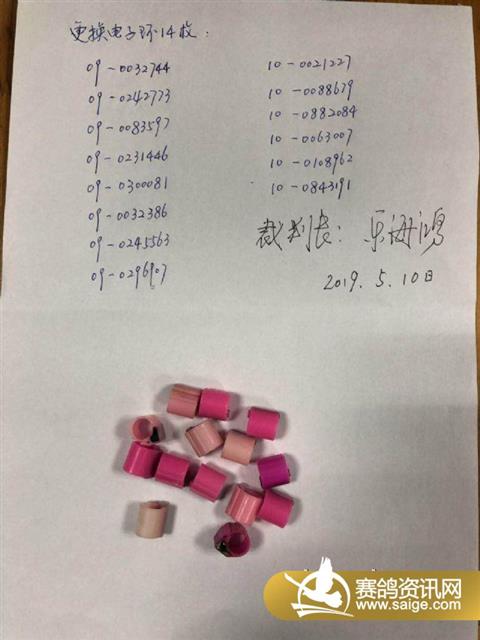 更换电子环14枚：
09-0032744
09-0242773
09-0083597
09-0231446
09-0300081
09-0032386
09-0245563
09-0296907
10-0021227
10-0088679
10-0882084
10-0063007
10-0108962
10-0843191
裁判长：
2019.5.10日
赛鸽资讯网
www.saige.com